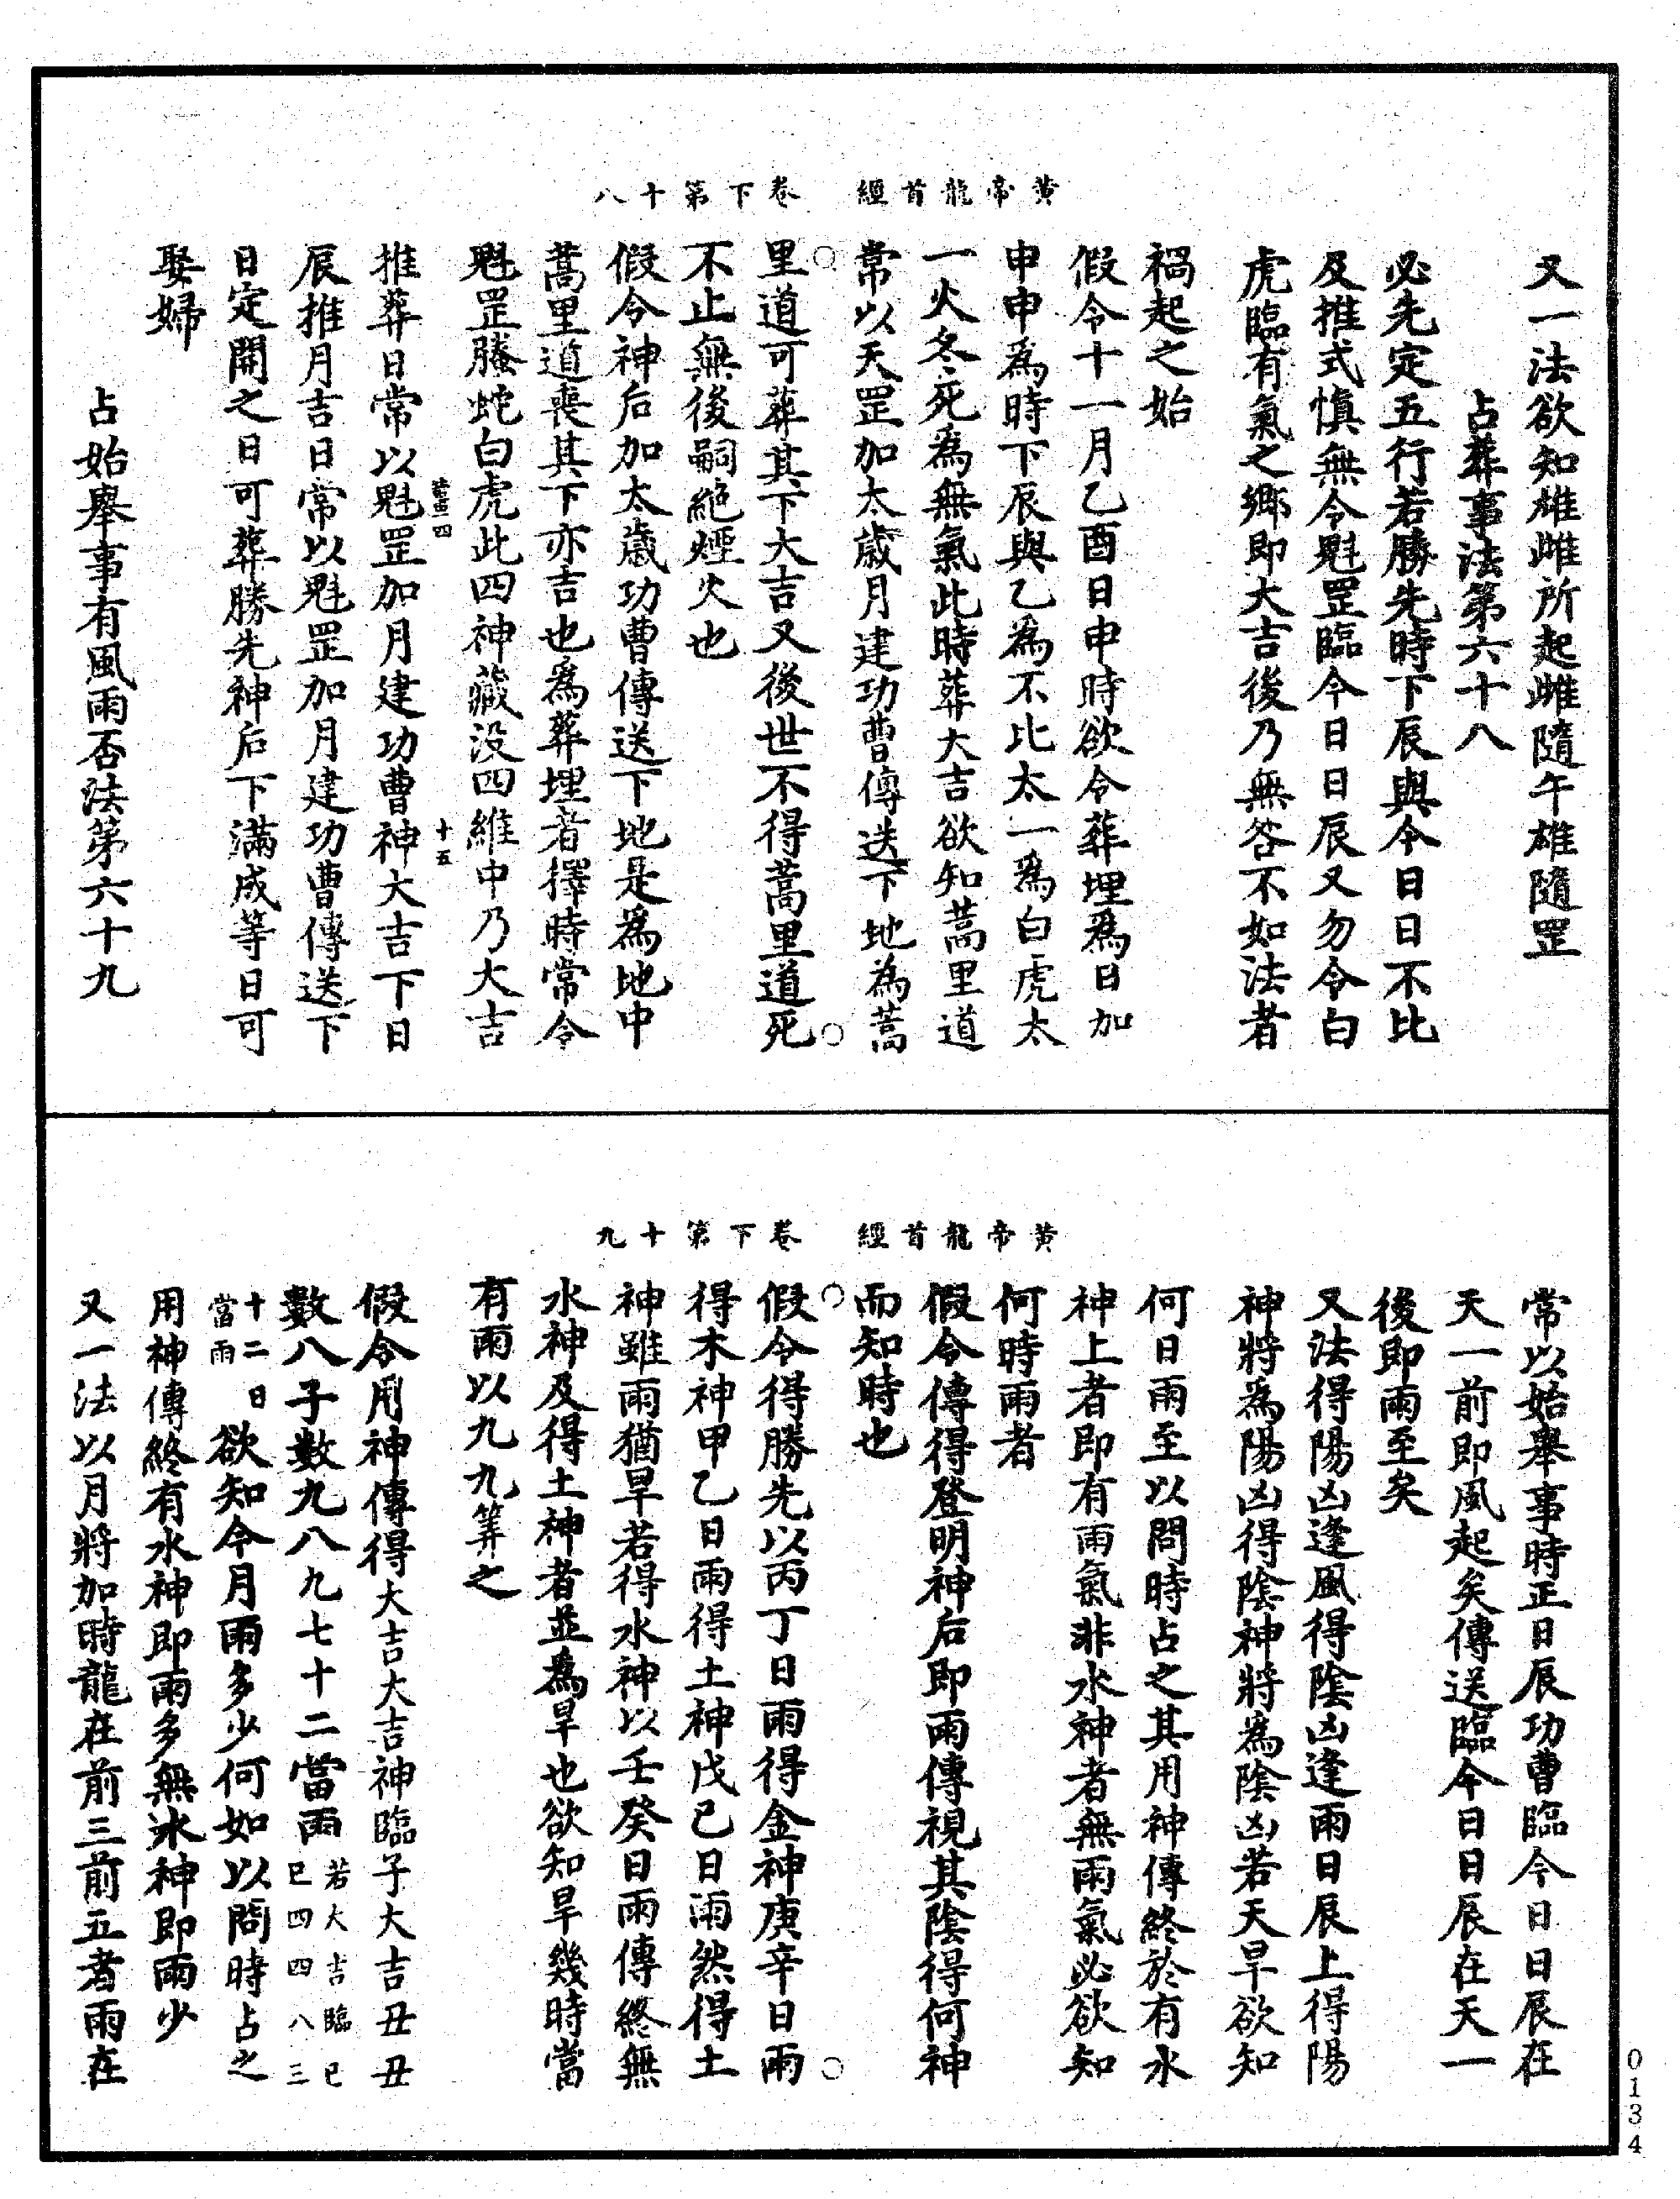 黄帝龍首經　卷下第十八
又一法欲知雄雌所起雌隨午雄隨罡
占葬事法第六十八
必先定五行若勝先時下辰與今日日不比
及推式慎無令魁罡臨今日日辰又勿令白
虎臨有氣之鄉即大吉後乃無咎不如法者
禍起之始
假令十一月乙酉日申時欲令葬埋爲日加
申申爲時下辰與乙爲不比太一爲白虎太
一火冬死爲無氣此時葬大吉欲知蒿里道
常以天罡加太歲月建功曹傳送下地爲蒿
里道可葬其下大吉又後世不得蒿里道死
不止無後嗣絶煙火也
假令神后加太歲功曹傳送下地是爲地中
蒿里道喪其下亦吉也爲葬埋者擇時常令
魁罡螣蛇白虎此四神藏没四維中乃大吉
薑四　十五
推葬日常以魁罡加月建功曹神大吉下日
辰推月吉日常以魁罡加月建功曹傳送下
日定開之日可葬勝先神后下滿成等日可
娶婦
占始舉事有風雨否法第六十九
黄帝龍首經　卷下第十九
常以始舉事時正日辰功曹臨今日日辰在
天一前即風起矣傳送臨今日日辰在天一
後即雨至矣
又法得陽凶逢風得陰凶逢雨日辰上得陽
神將爲陽凶得陰神將爲陰凶若天旱欲知
何日雨至以問時占之其用神傳終於有水
神上者即有雨氣非水神者無雨氣必欲知
何時雨者
假令傳得登明神后即雨傳視其陰得何神
而知時也
假令得勝先以丙丁日雨得金神庚辛日雨
得木神甲乙日雨得土神戊己日雨然得土
神雖雨猶旱若得水神以壬癸日雨傳終無
水神及得土神者並爲旱也欲知旱幾時當
有雨以九九筭之
假令用神傳得大吉大吉神臨子大吉丑丑
數八子數九八九七十二當雨若大吉臨巳
巳四四八三
十二日
當雨欲知今月雨多少何如以問時占之
用神傳終有水神即雨多無水神即雨少
又一法以月將加時龍在前三前五者雨在
0134